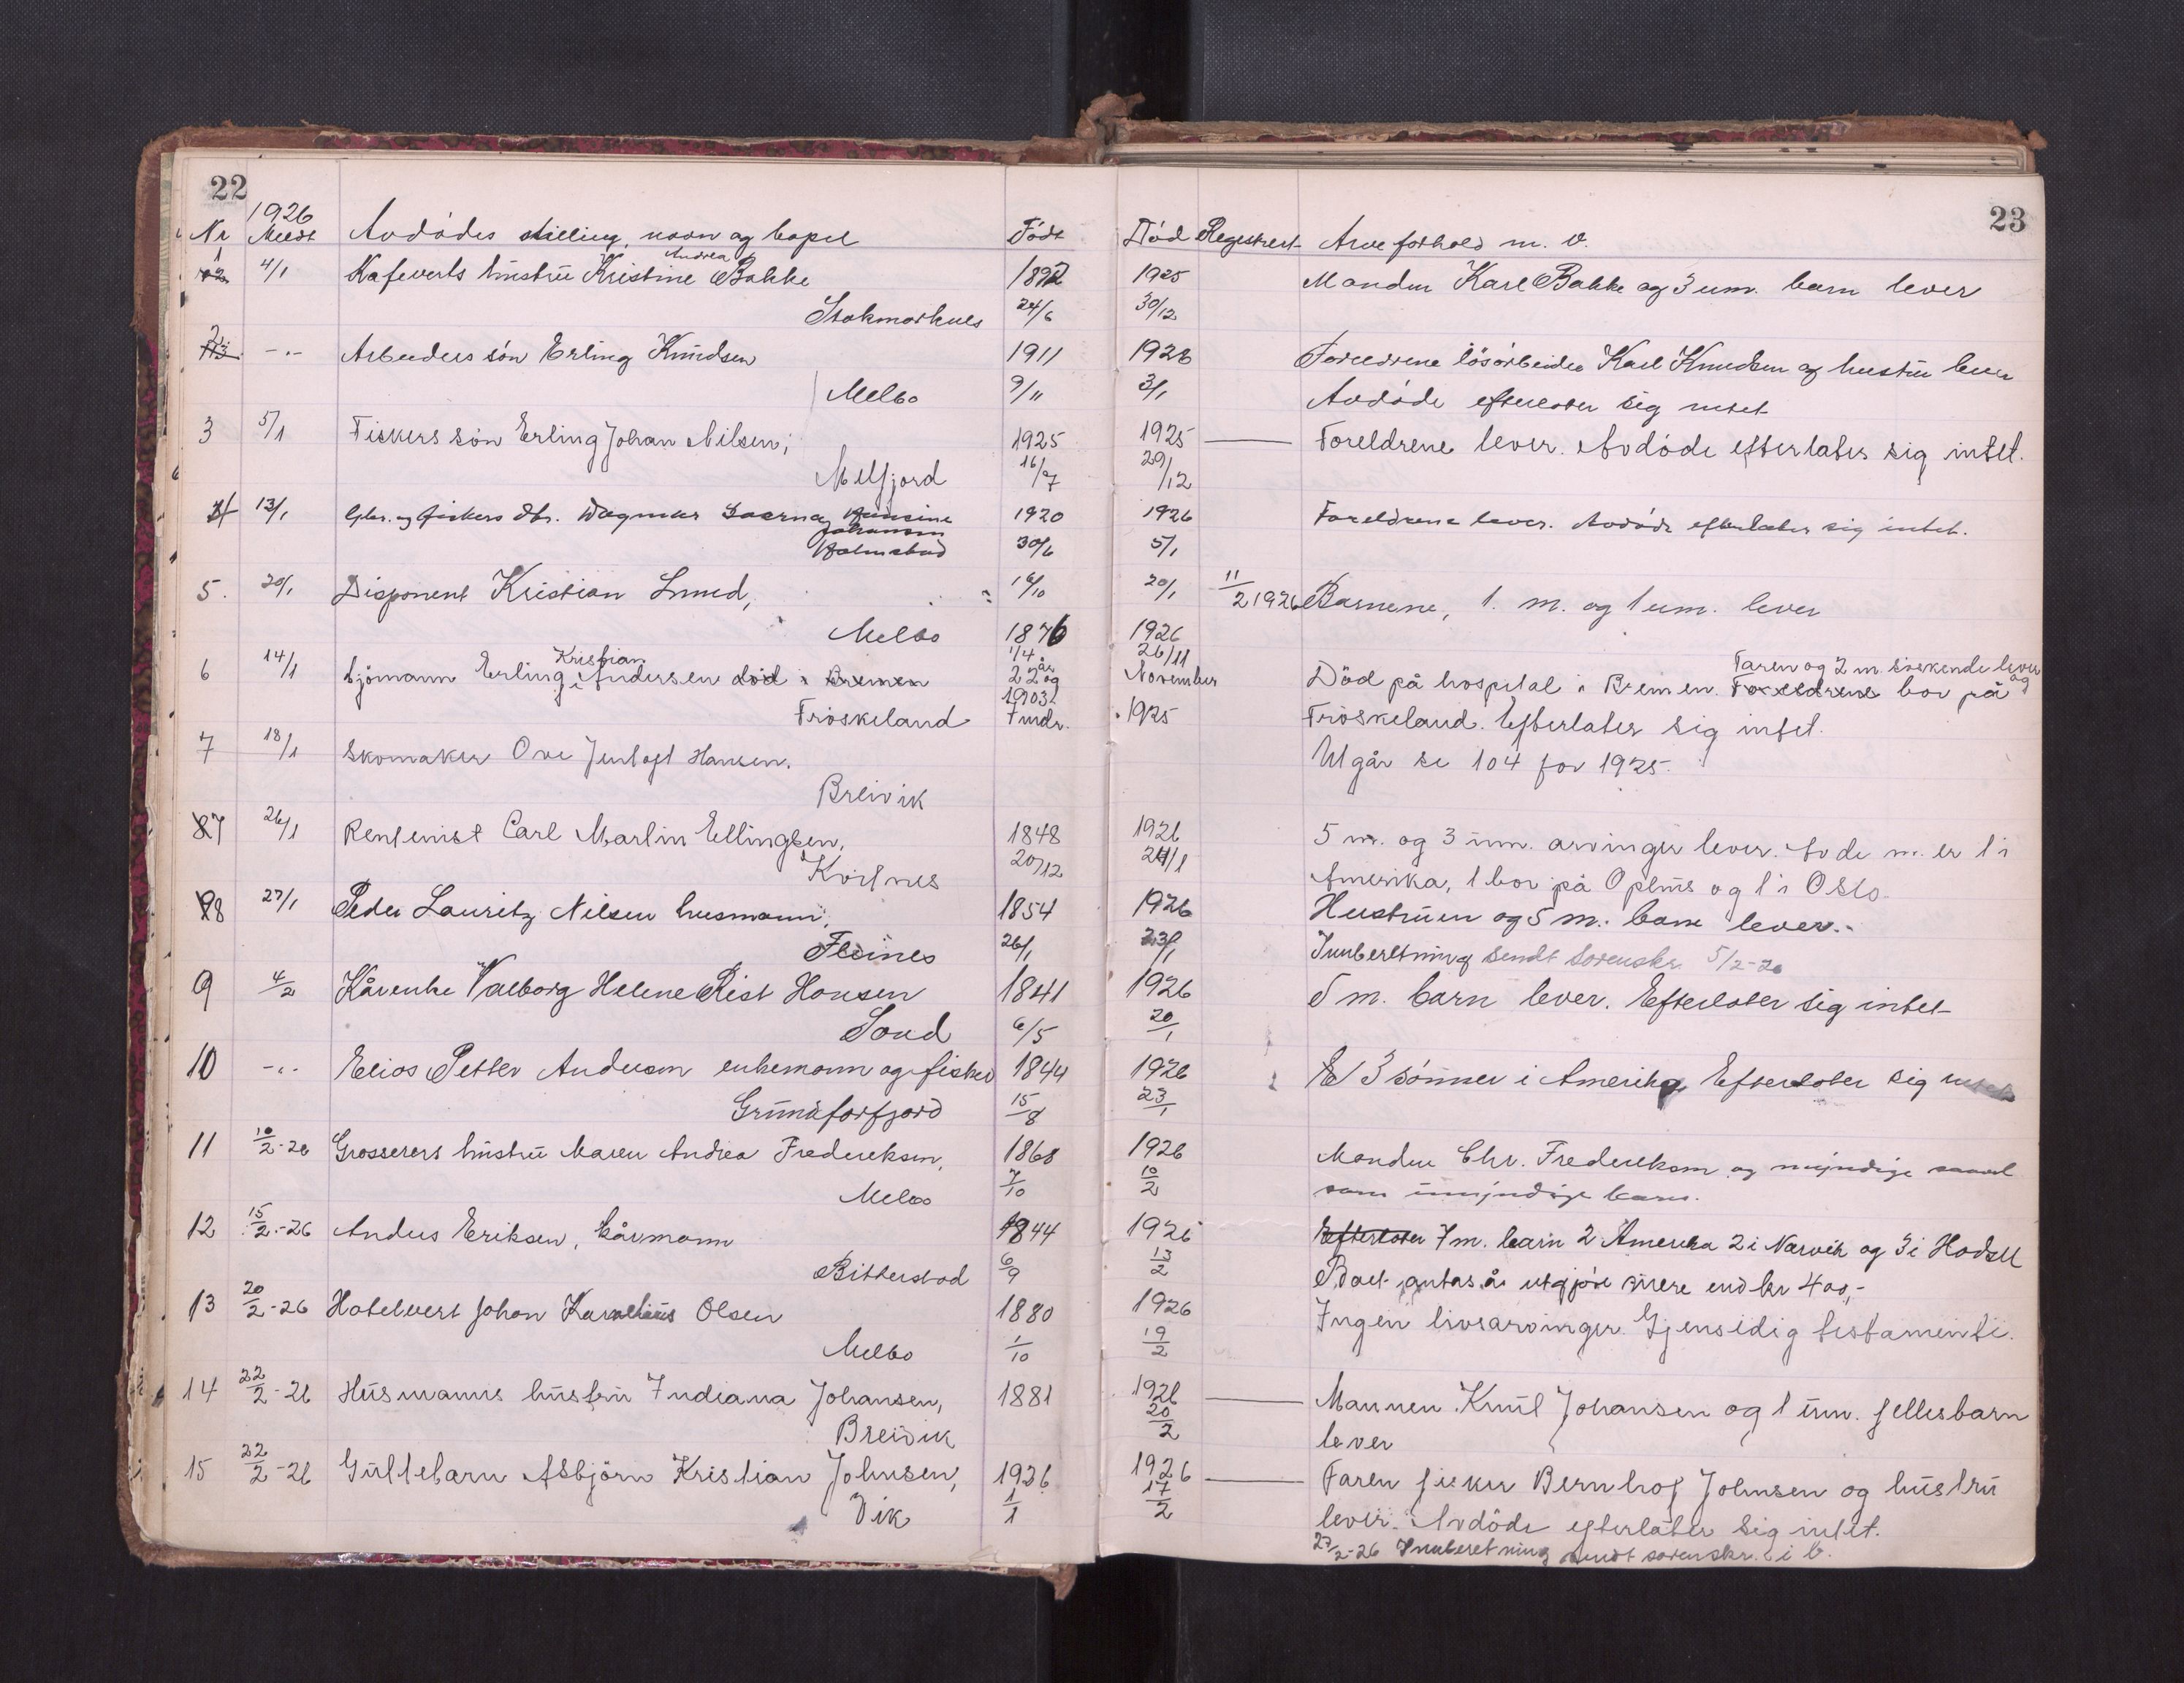 22
23
1926
Nr Meldt Avdødes stilling, navn og bopel Født Død Registrert Arveforhold m. v.
1 4/1 Kafeverts hustru Kristine Andrea Bakke 1892 1925 Manden Karl Bakke og 3 um. barn lever
Stokmarknes 24/6 30/12
2 -"- Arbeiders søn Erling Knudsen 1911 1926 Foreldrene løsarbeider Karl Knudsen og hustru lever
Melbo 9/11 3/1 Avdøde efterlater sig intet
3 5/1 Fiskers søn Erling Johan Nilsen, 1925 1925 Foreldrene lever. Avdøde efterlater sig intet.
Melfjord 16/7 29/12
4 13/1 Gbr. og fiskers dtr. Dagmar Hansine 1920 1926 Foreldrene lever. Avdøde efterlater sig intet.
Johansen
Holmstad 30/6 5/1
5. 20/1 Disponent Kristian Lund, 16/10 20/1 11/2 1926 Barnene, 1. m. og 1 um. lever
Melbo 1876 1926
6 14/1 Sjømann Erling Kristian Andersen død i Bremen 1/4 22 år og 26/11 November Død på hospital i Bremen. Foreldrene Faren og 2 m. søskende lever og bor på
Frøskeland 1903 7 mdr. 1925 Frøskeland. Efterlater sig intet.
7 18/1 Skomaker Ove Jentoft Hansen. Utgår se 104 for 1925.
Breivik
7 26/1 Rentenist Carl Martin Ellingsen, 1848 1926 5 m. og 3 um. arvinger lever. Av de m. er 1 i
Kvitnes 20/12 24/1 Amerika, 1 bor på Oplnes og 1 i Oslo.
8 27/1 Peder Lauritz Nilsen husmann, 1854 1926 Hustruen og 5 m. barn lever.
Fleines 26/1 23/1 Innberetning sendt sorenskr. 5/2-26
9 4/2 Kårenke Valborg Helene Rist Hansen 1841 1926 5 m. barn lever. Efterlater sig intet
Sand 6/5 20/1
10 -"- Elias Petter Andersen enkemann og fisker 1844 1926 3 sønner i Amerika. Efterlater sig intet
Grunnforfjord 15/8 23/1
11 10/2-26 Grosserers hustru Maren Andrea Frederiksen, 1868 1926 Manden Chr. Frederiksen og myndige saavel
Melbo 7/10 10/2 som umyndige barn.
12 15/2-26 Anders Eriksen, kårmann 1844 1926 Efterlater 7 m. barn 2 Amerika 2 i Narvik og 3 i Hadsel
Bitterstad 6/9 13/2 Boet antas å utgjøre mere end kr 400,-
13 20/2-26 Hotelvert Johan Kornelius Olsen 1880 1926 Ingen livsarvinger. Gjensidig testamente.
Melbo 1/10 19/2
14 22/2-26 Husmanns hustru Indiana Johansen, 1881 1926 Mannen Knut Johansen og 1 um. fellesbarn
Breivik 20/2 lever
15 22/2-26 Guttebarn Asbjørn Kristian Johnsen, 1926 1926 Faren fisker Bernhof Johnsen og hustru
Vik 1/1 17/2 lever. Avdøde efterlater sig intet.
27/2-26 Innberetning sendt sorenskr. i b.